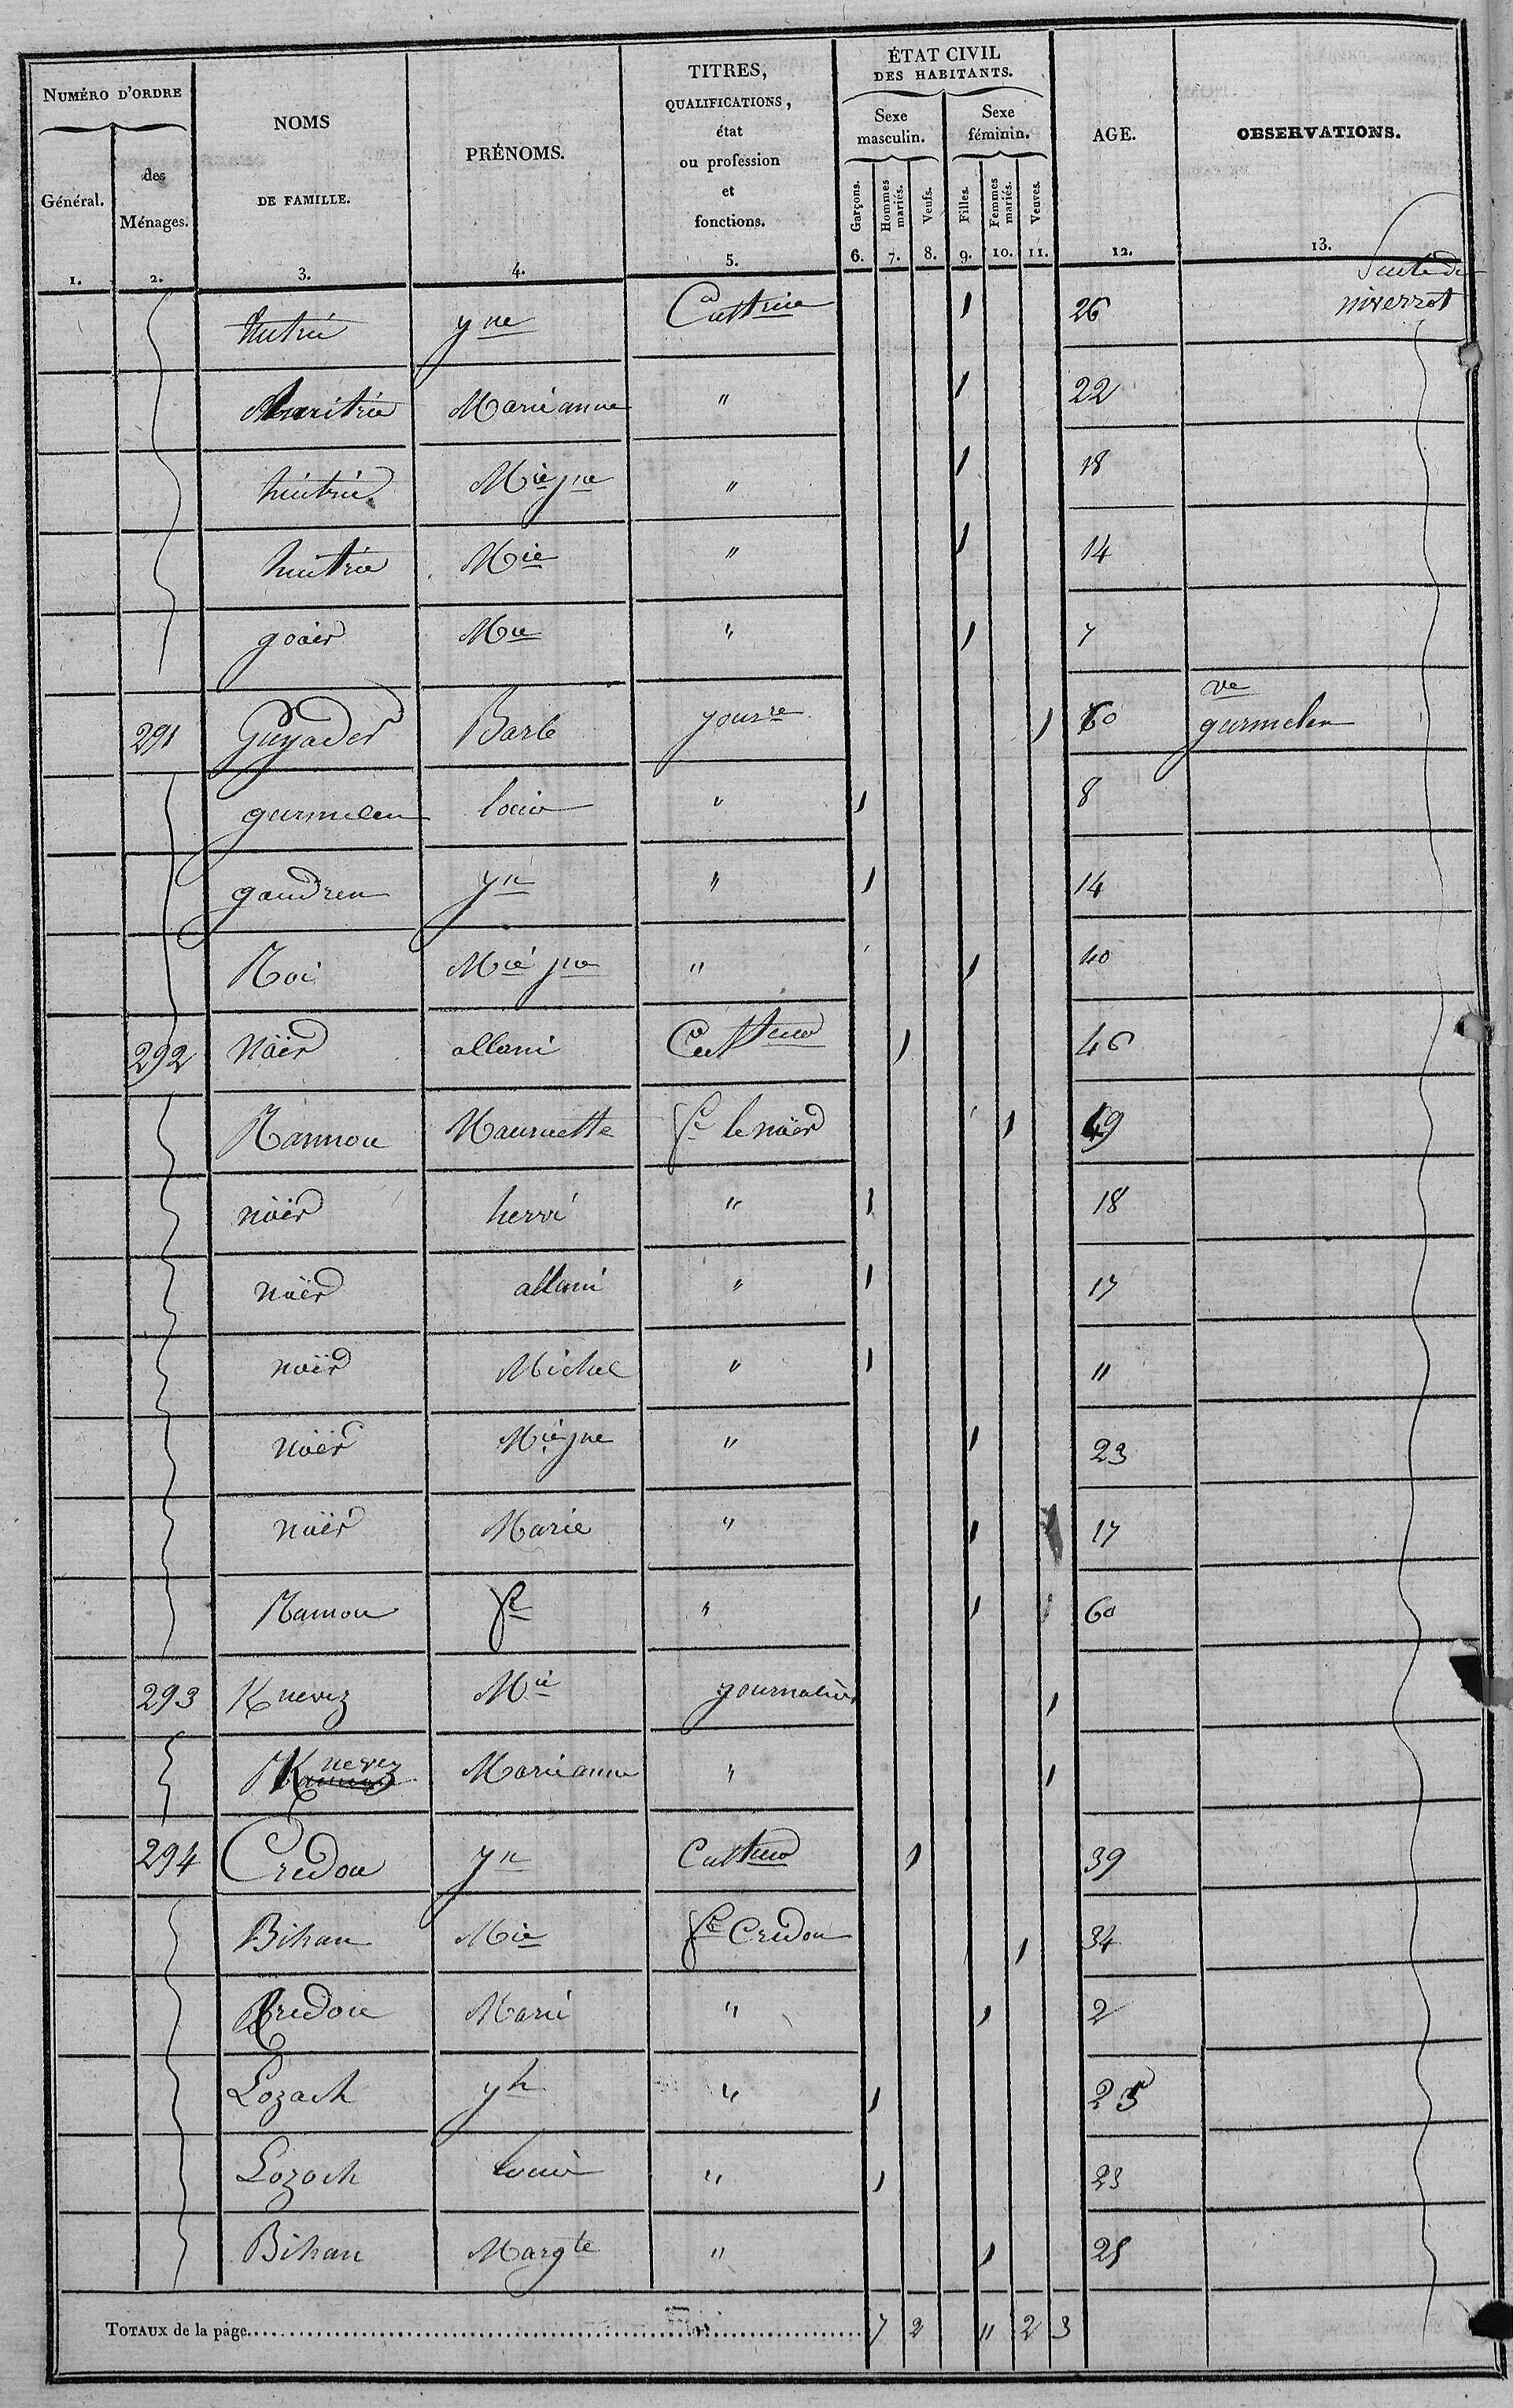 NUMÉRO D'ORDRE
Général.
des Ménages.
NOMS DE FAMILLE.
PRÉNOMS.
TITRES, QUALIFICATIONS, état ou profession et fonctions.
ÉTAT CIVIL DES HABITANTS.
Sexe masculin.
Sexe féminin.
Garçons.
Hommes mariés.
Veufs.
Filles.
Femmes mariés.
Veuves.
AGE.
OBSERVATIONS.
1. 2. 3. 4. 5. 6. 7. 8. 9. 10. 11. 12. 13.
Suite de
yne 1 26
Marieanne " 1 22
Mie jne " 1 18
Mie " 1 14
goaër Mie " 1 7
291 Guyader Barbe jourre 1 60 ve gurmelen
gurmelen louis " 1 8
gaudren yn " 1 14
Mie jne " 1 40
292 Naër allain Culteur 1 46
Rannou Mauricette fe le naër 1 49
naër hervé " 1 18
naër allain " 1 17
naër Michel " 1 11
naër Mie jne " 1 23
naër Marie " 1 17
Rannou fse " 1 60
293 Knevez Mie journalière 1
Knevez Marieanne " 1
294 Credou yn Culteur 1 39
Bihan Mie fe Credou 1 34
Credou Marie " 1 2
Lozach yh " 1 25
Lozach louis " 1 23
Bihan Margte " 1 25
TOTAUX de la page 7 2 11 2 3